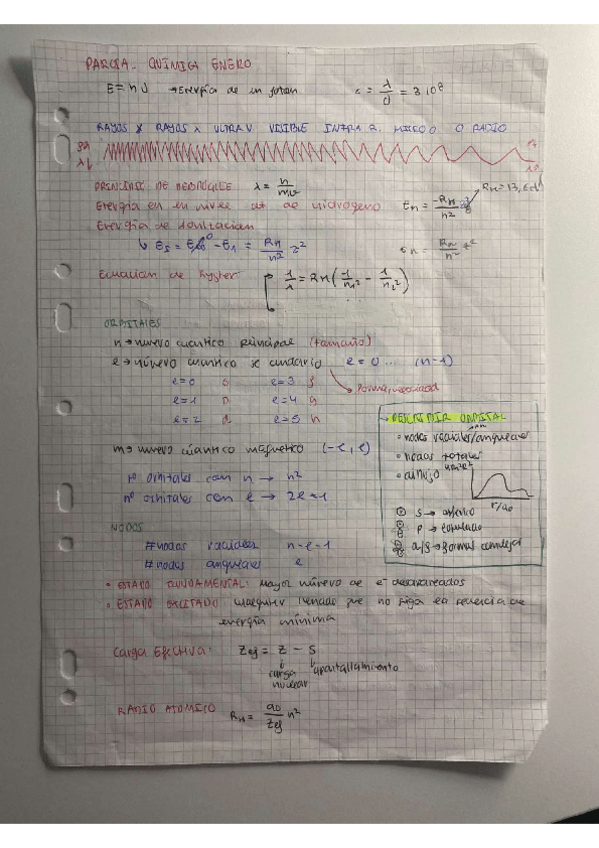 PARCIAL QUÍMICA ENERO
E = h ν → Energía de un foton c = λ/ν = 3·10⁸
RAYOS γ RAYOS X ULTRA V VISIBLE INFRA R. MICRO O RADIO
PRINCIPIO DE DEBROGLIE λ = h/mv
Energía en un nivel at de hidrogeno En = -RH/n² RH = 13,6 eV
Energía de ionización
↳ EI = E∞ - E1 = RH/n² z²
Ecuación de Ryber 1/λ = RH (1/n1² - 1/n2²)
ORBITALES
n → número cuántico principal (tamaño)
l → número cuántico secundario l = 0 ... (n-1)
l=0 s l=3 f
l=1 p l=4 g
l=2 d l=5 h
m → número cuántico magnético (-l, l)
nº orbitales con n → n²
nº orbitales con l → 2l+1
→ DESCRIBIR ORBITAL
• nodos radiales/angulares
• nodos totales
• dibujo
r/a₀
S → esférico
P → lobulado
d/f → formas complejas
NODOS
#nodos radiales n-l-1
#nodos angulares l
• ESTADO FUNDAMENTAL: mayor número de e⁻ desapareados
• ESTADO EXCITADO: cualquier llenado que no siga la secuencia de
energía mínima
Carga Efectiva: Zef = Z - S
carga nuclear apantallamiento
RADIO ATOMICO RH = a₀/Zef n²